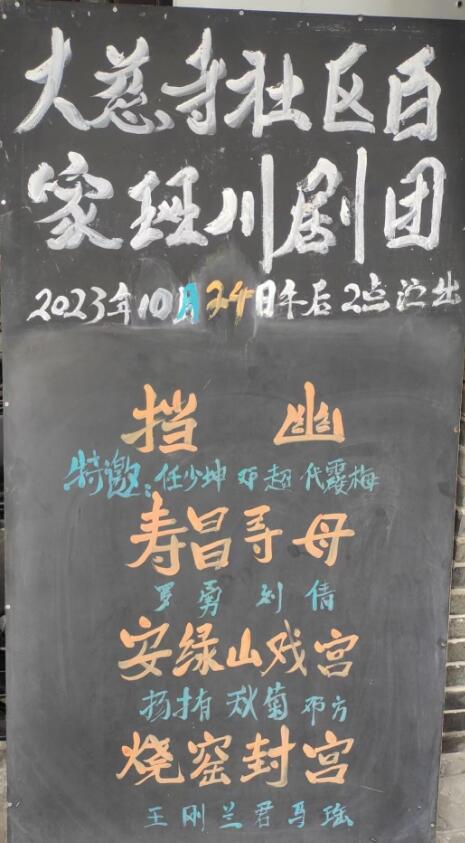 大慈寺社区百
家班川剧团
2023年10月24日午后2点演出
挡 幽
特邀：任少坤 邓超 代霞梅
寿昌寻母
罗勇 刘倩
安绿山戏宫
扬才有 秋菊 邓方
烧窑封宫
王刚 兰君 马瑶